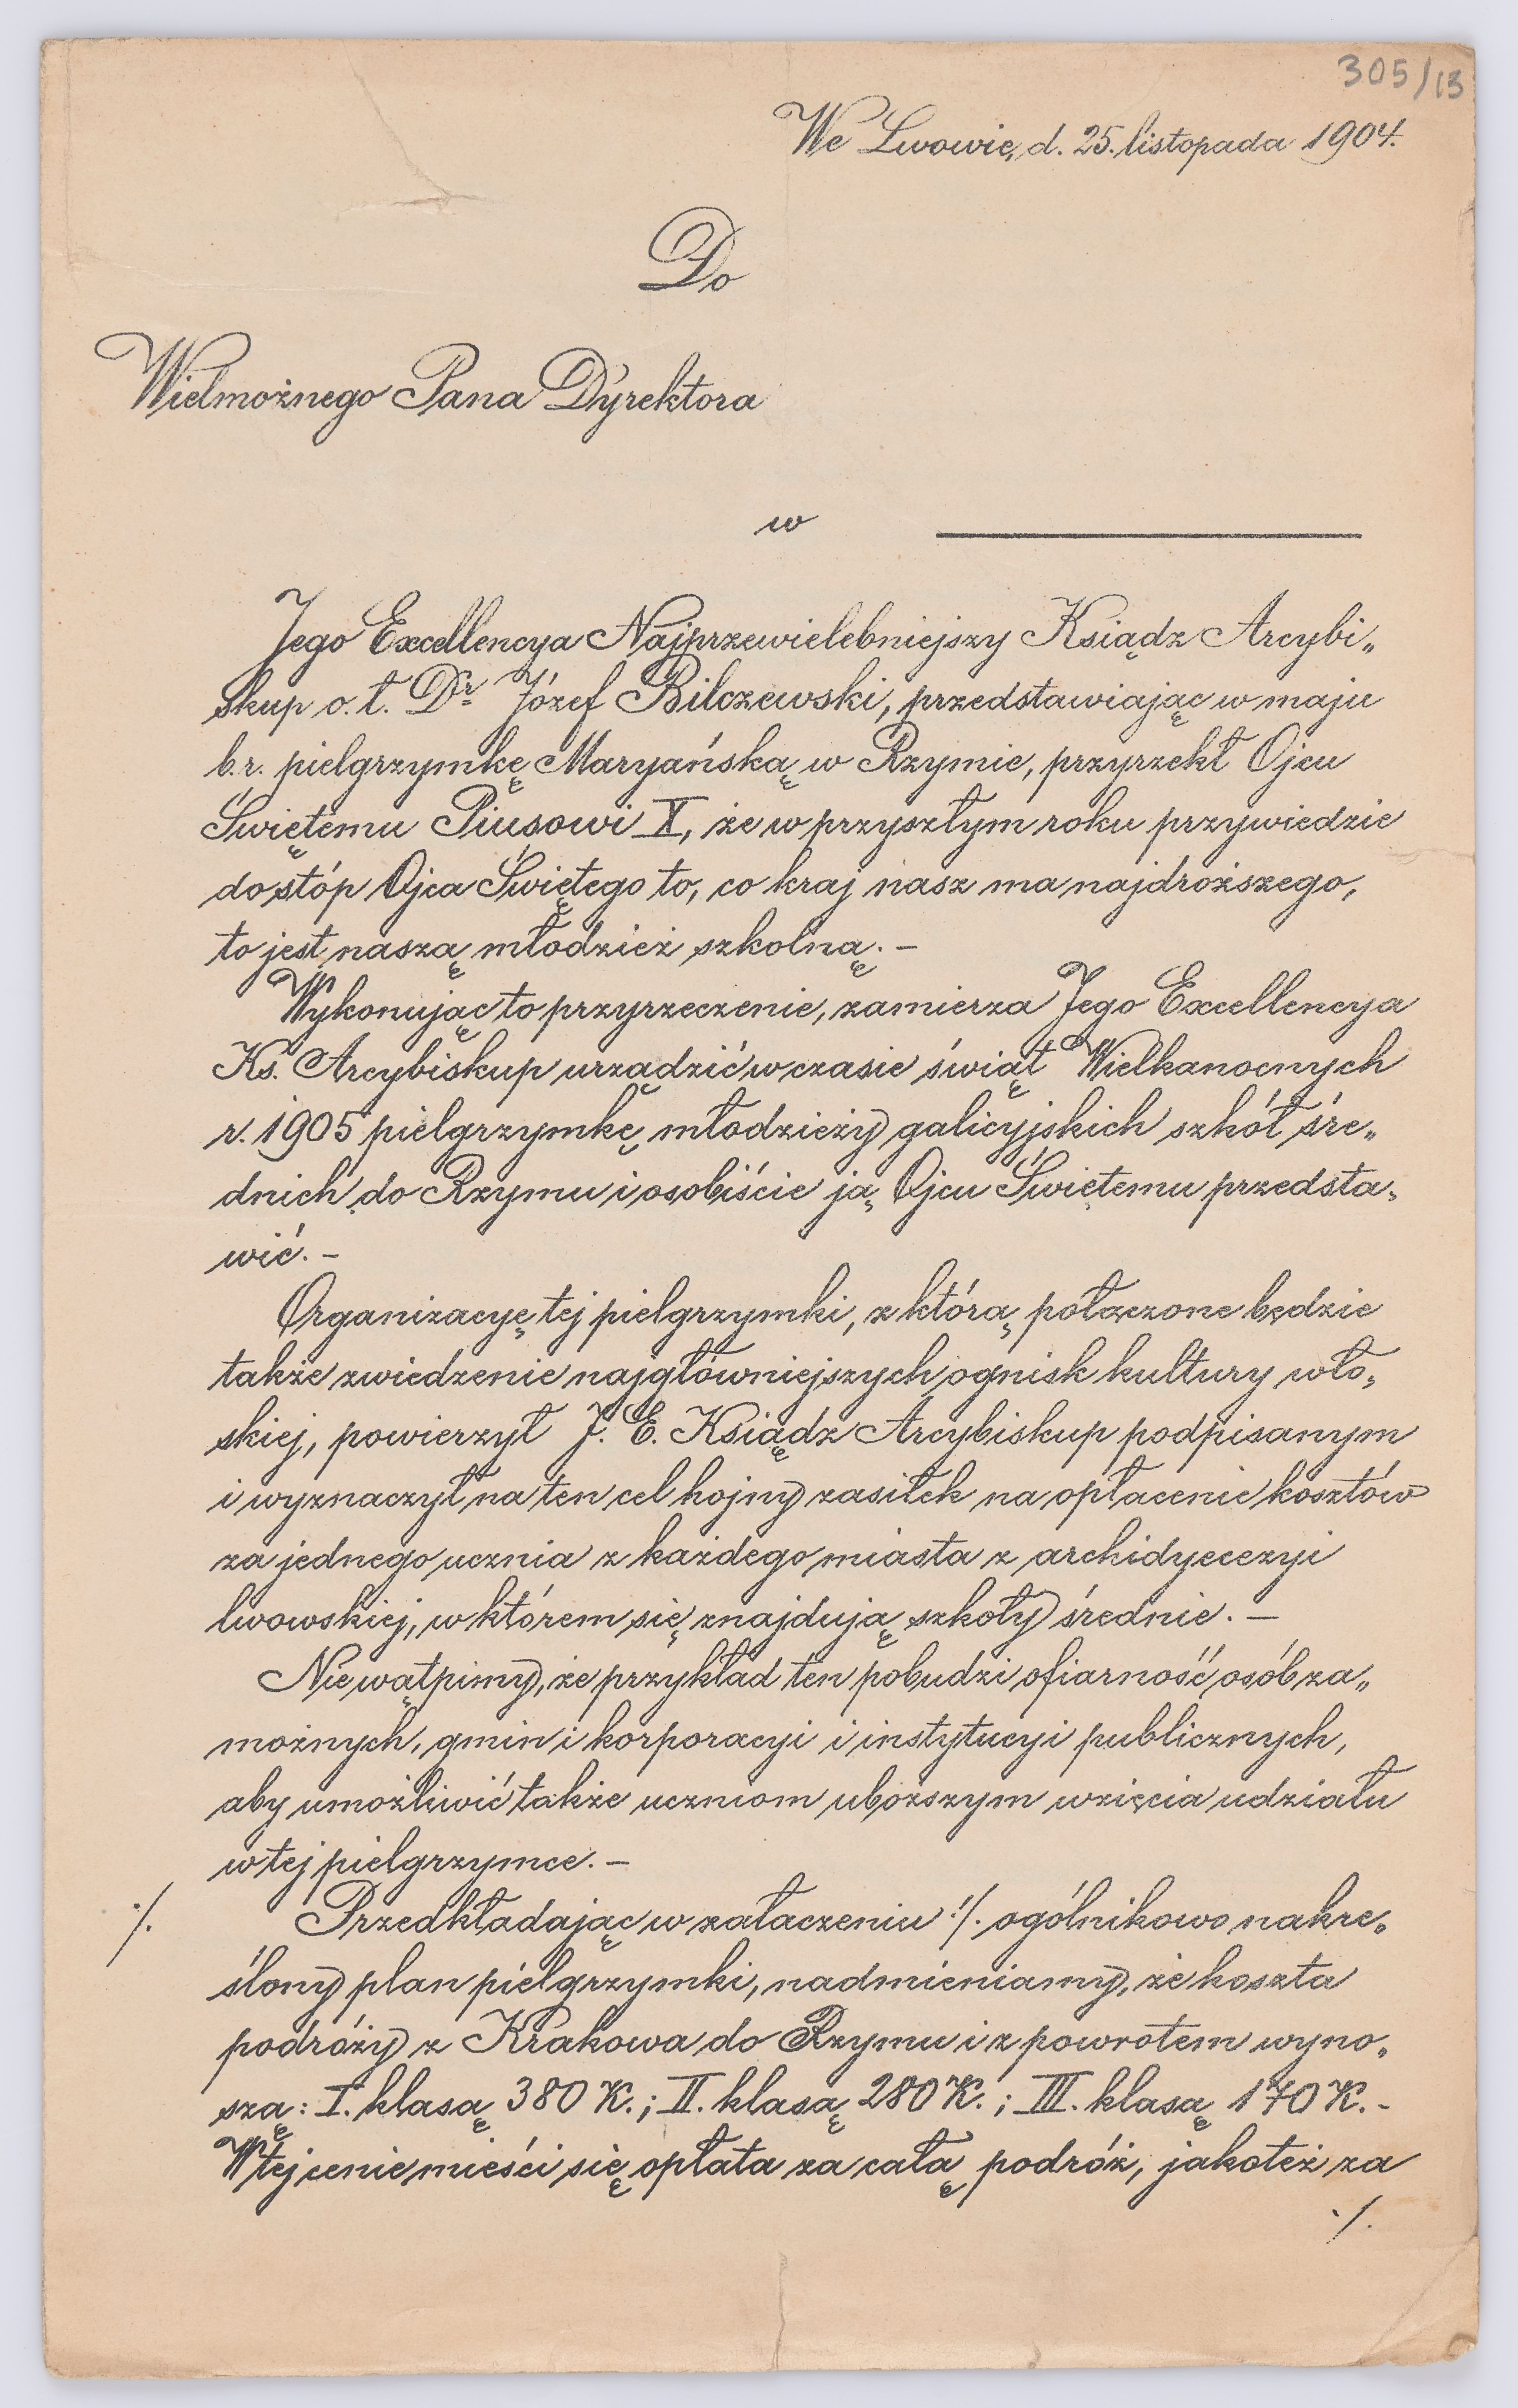 305/13
We Lwowie, d. 25. listopada 1904.
Do
Wielmożnego Pana Dyrektora
w
Jego Excellencya Najprzewielebniejszy Ksiądz Arcybi„
skup o. ł. Dr. Józef Bilczewski, przedstawiając w maju
b. r. pielgrzymkę Maryańską w Rzymie, przyrzekł Ojcu
Świętemu Piusowi X, że w przyszłym roku przywiedzie
do stóp Ojca Świętego to, co kraj nasz ma najdroższego,
to jest naszą młodzież szkolną. –
Wykonując to przyrzeczenie, zamierza Jego Excellencya
Ks. Arcybiskup urządzić w czasie świąt Wielkanocnych
r. 1905 pielgrzymkę młodzieży galicyjskich szkół śre„
dnich do Rzymu i osobiście ją Ojcu Świętemu przedsta„
wić. –
Organizacyę tej pielgrzymki, z którą połączone będzie
także zwiedzenie najgłówniejszych ognisk kultury wło„
skiej, powierzył J. E. Ksiądz Arcybiskup podpisanym
i wyznaczył na ten cel hojny zasiłek na opłacenie kosztów
za jednego ucznia z każdego miasta z archidyecezyi
lwowskiej, w którem się znajdują szkoły średnie. –
Nie wątpimy, że przykład ten pobudzi ofiarność osób za„
możnych, gmin i korporacyi i instytucyi publicznych,
aby umożliwić także uczniom uboższym wzięcia udziału
w tej pielgrzymce. –
./. Przedkładając w załaczeniu ./. ogólnikowo nakre„
ślony plan pielgrzymki, nadmieniamy, że koszta
podróży z Krakowa do Rzymu i z powrotem wyno„
szą: I. klasą 380 K.; II. klasą 280 K.; III. klasą 170 K. –
W tej cenie mieści się opłata za całą podróż, jakoteż za
./.